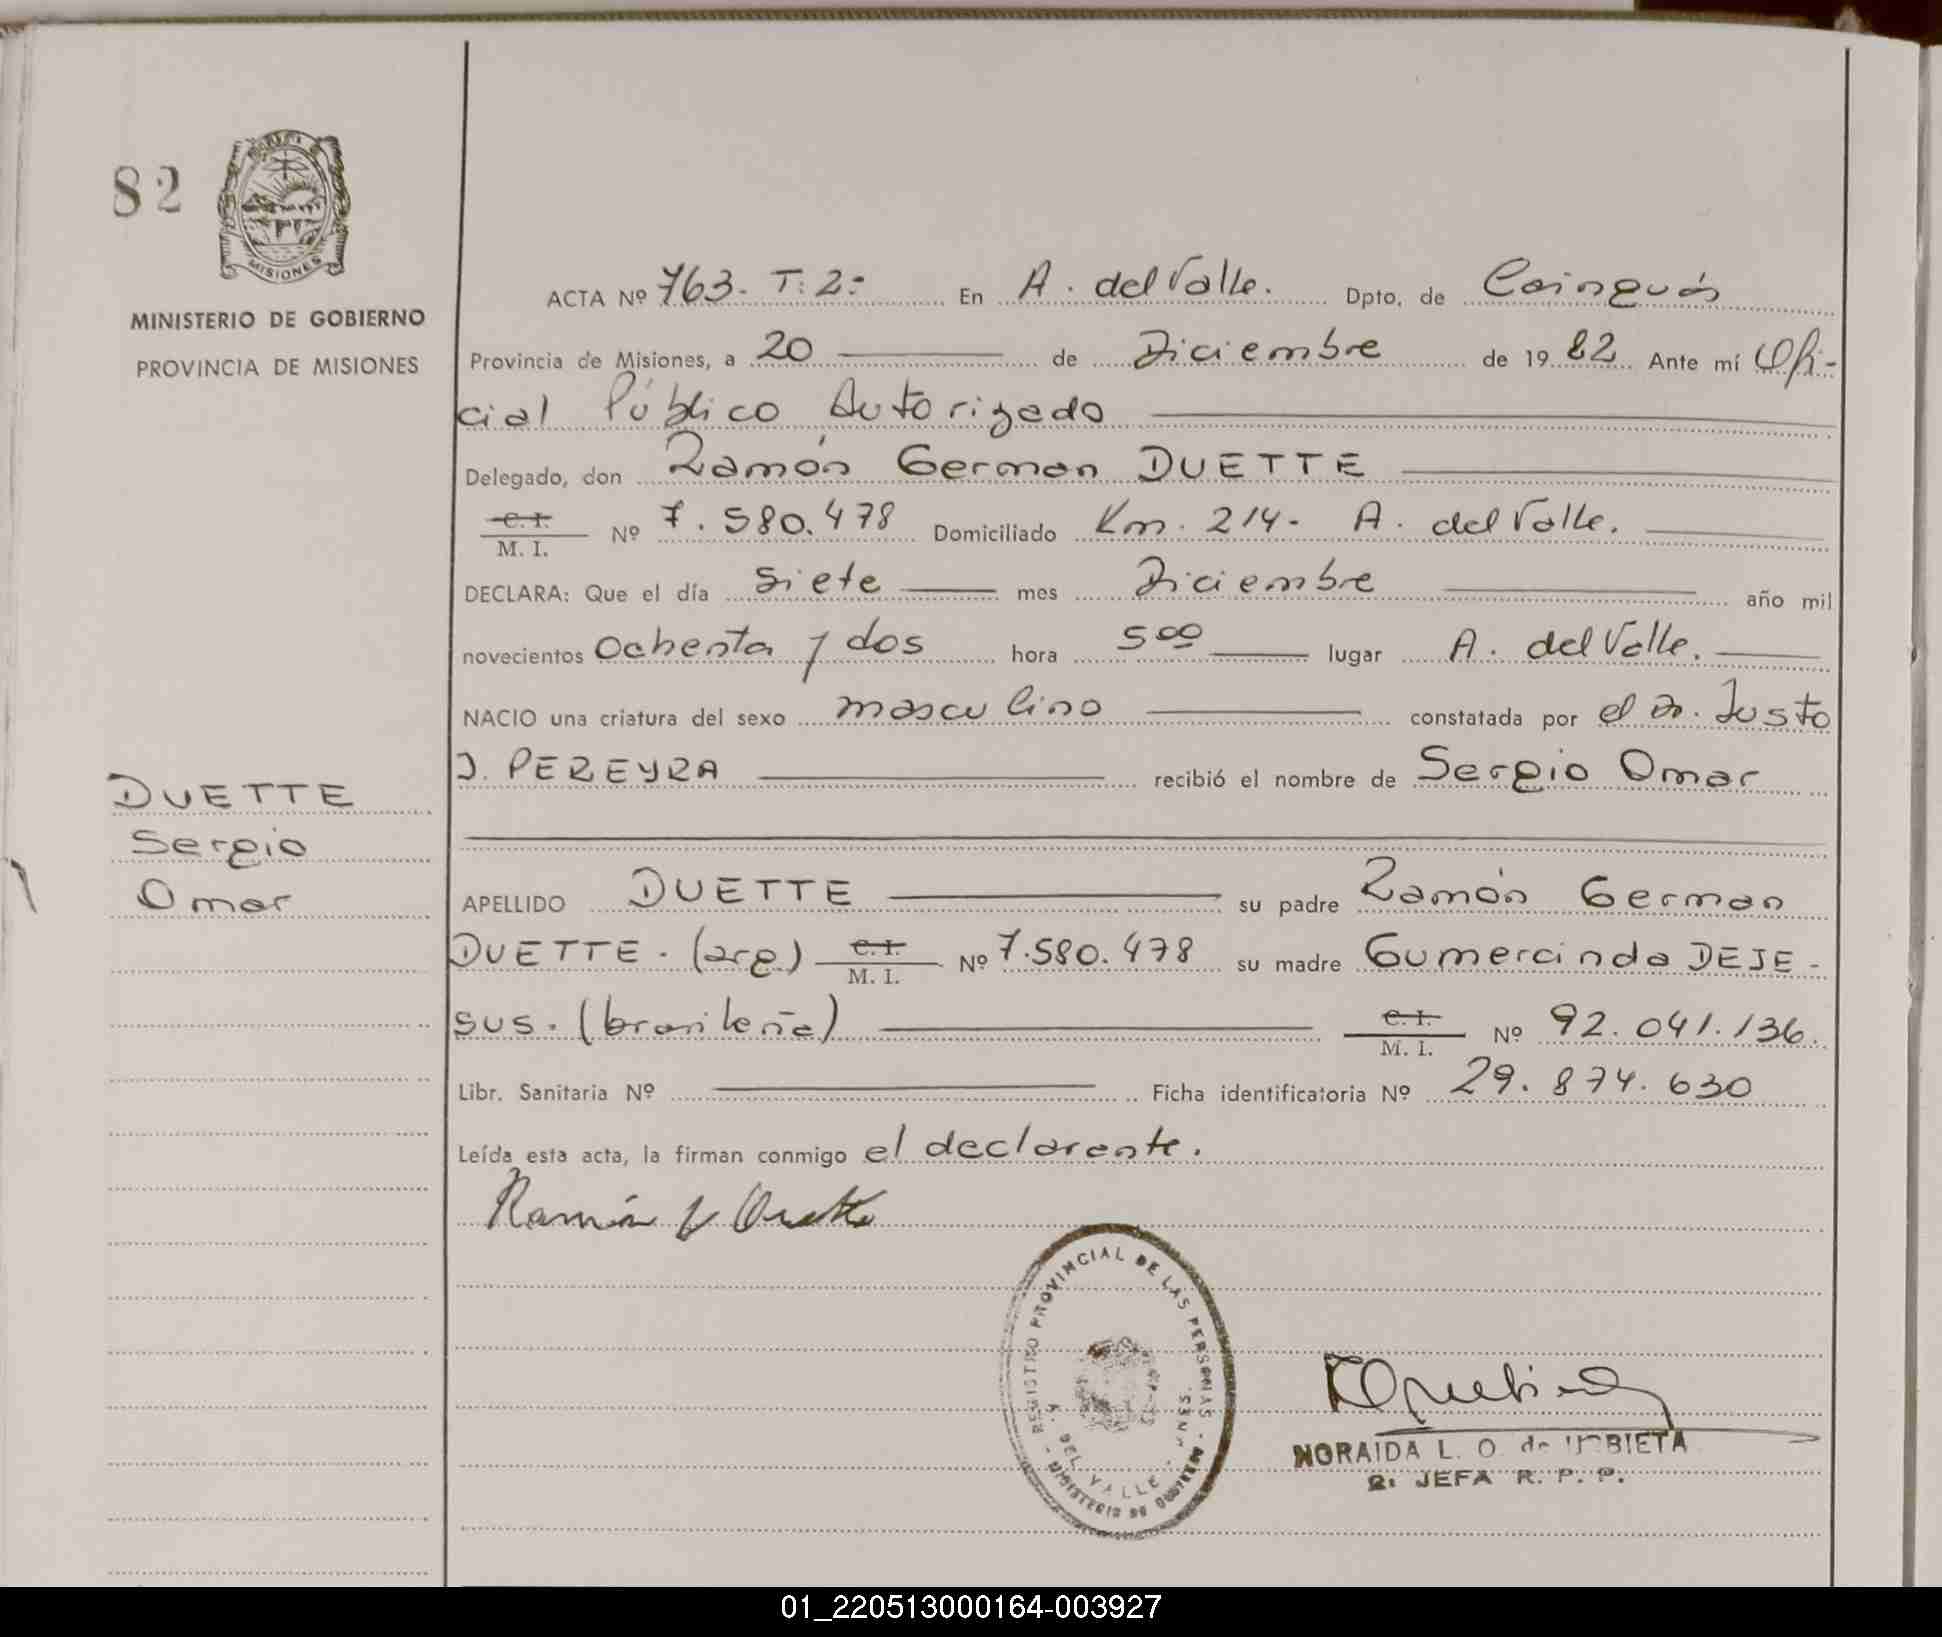 82
MISIONES
MINISTERIO DE GOBIERNO
PROVINCIA DE MISIONES
DUETTE
Sergio
Omar
ACTA Nº 763. T: 2: En A. del Valle. Dpto. de Cainguás
Provincia de Misiones, a 20 de Diciembre de 19 82 Ante mí Ofi-
cial Público Autorizado
Delegado, don Ramón German DUETTE
C. I.
M. I. Nº 7.580.478 Domiciliado Km. 214- A. del Valle.
DECLARA: Que el día siete mes Diciembre año mil
novecientos Ochenta y dos hora 5 00 lugar A. del Valle.
NACIO una criatura del sexo masculino constatada por el Dr. Justo
J. PEREYRA recibió el nombre de Sergio Omar
APELLIDO DUETTE su padre Ramón German
DUETTE. (arg) C. I. M. I. Nº 7.580.478 su madre Gumercinda DEJE-
SUS. (brasileña) C. I. M. I. Nº 92.041.136.
Libr. Sanitaria Nº Ficha identificatoria Nº 29.874.630
Leída esta acta, la firman conmigo el declarante.
Ramón G Duette
REGISTRO PROVINCIAL DE LAS PERSONAS
A. DEL VALLE
MINISTERIO DE GOBIERNO
NORAIDA L. O. de URBIETA
2: JEFA R. P. P.
01_220513000164-003927